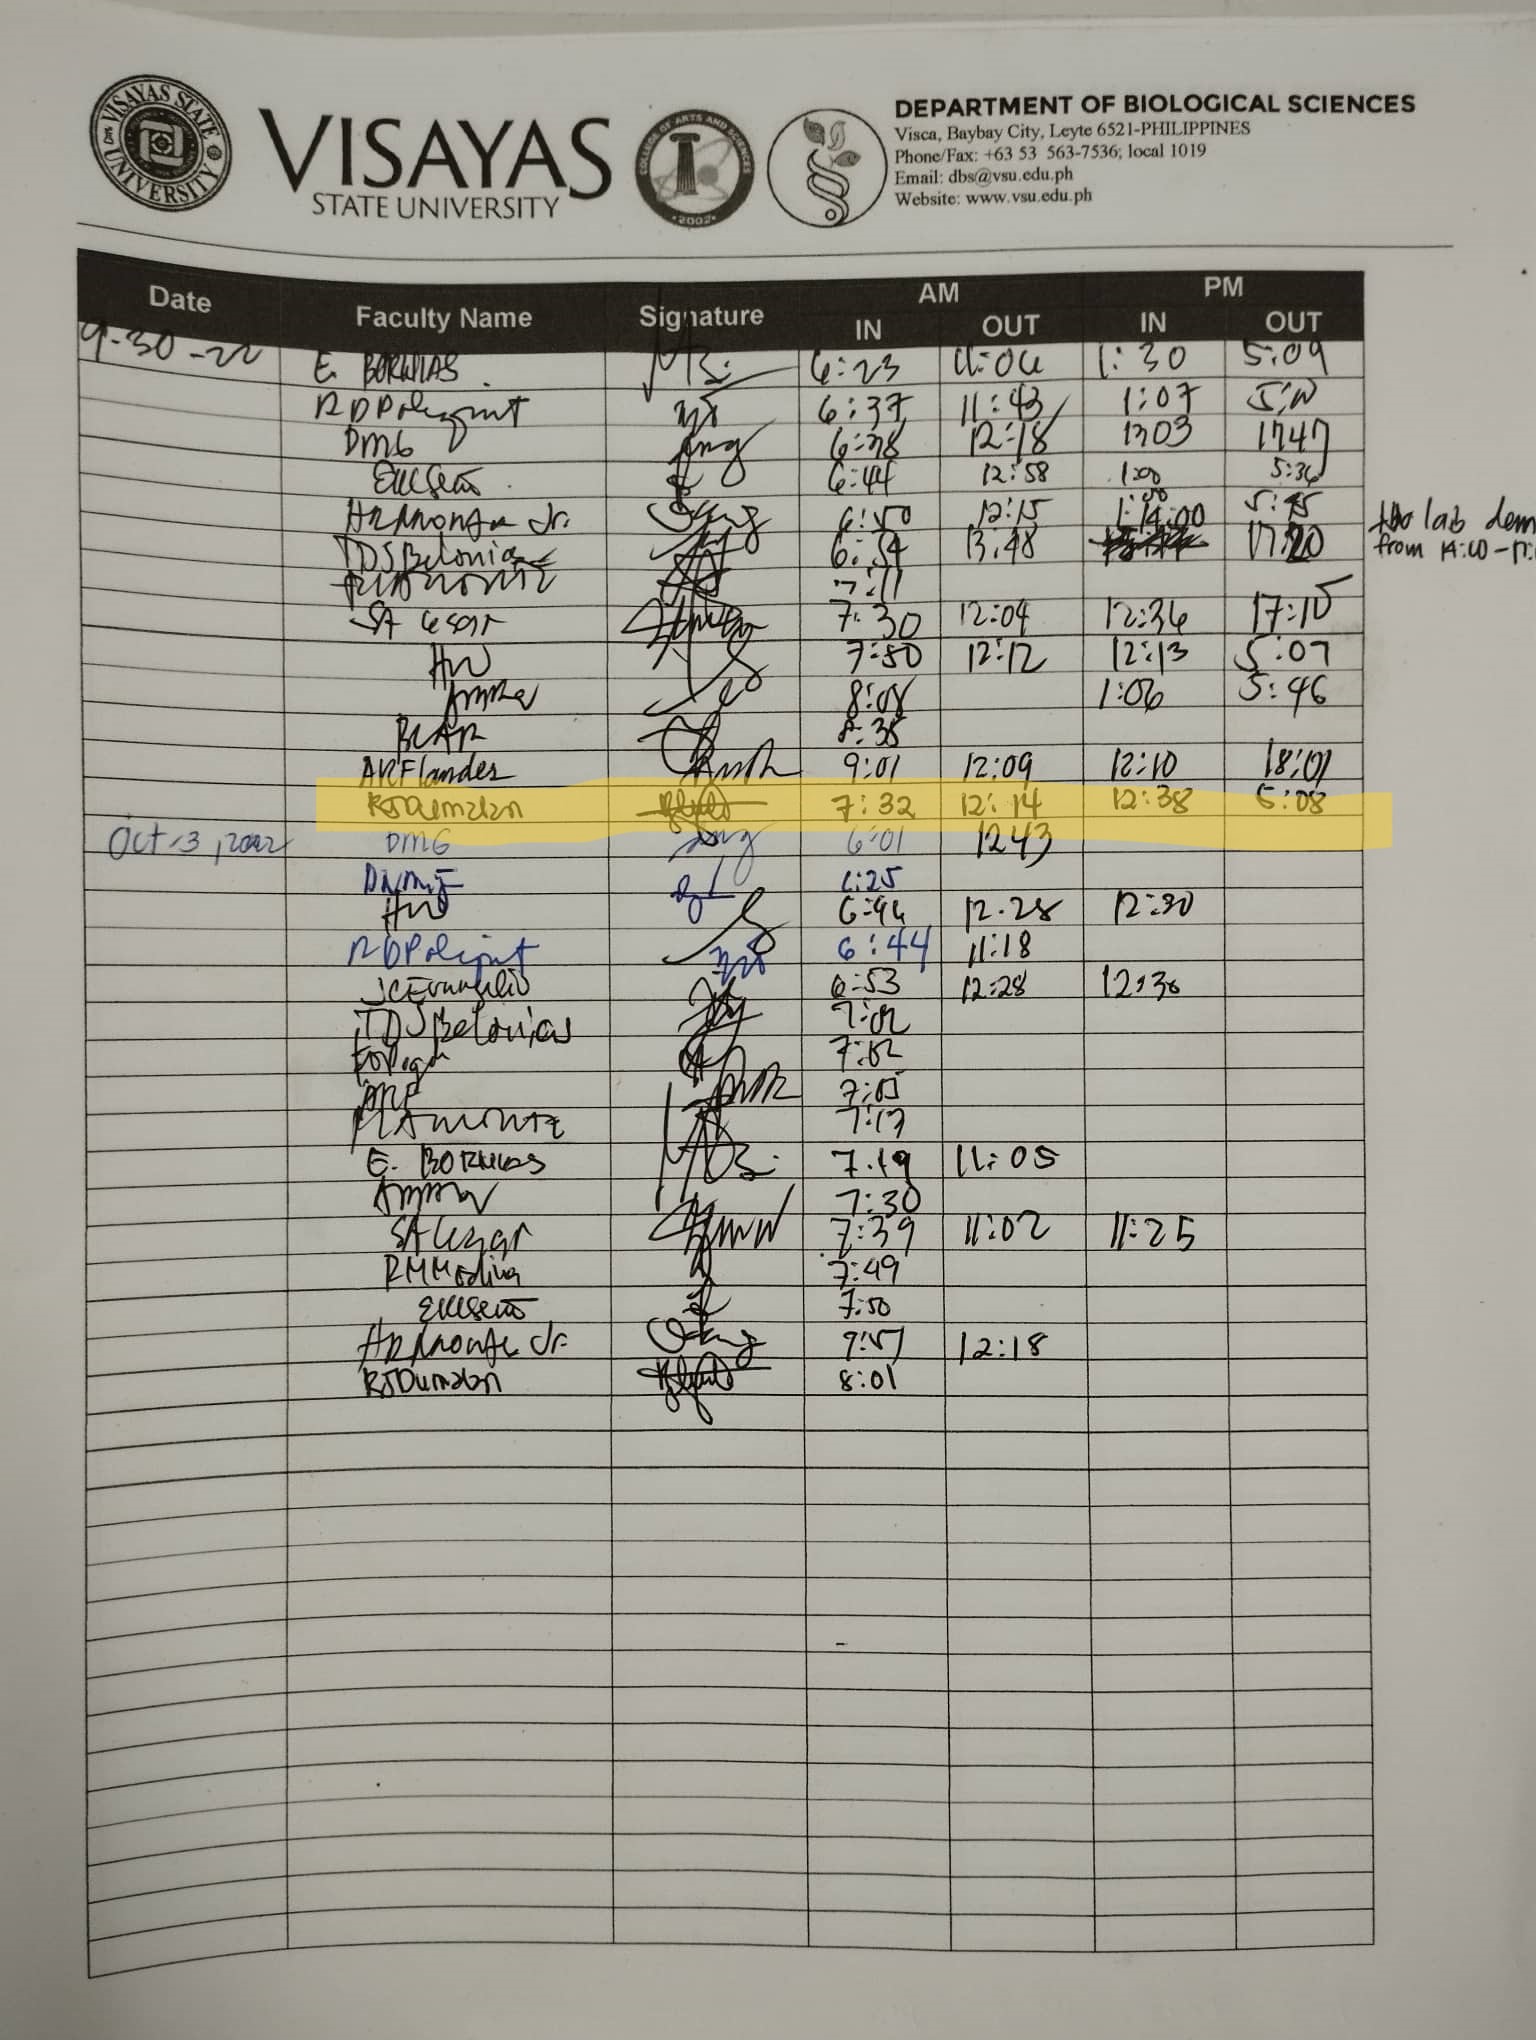 VISAYAS STATE UNIVERSITY
VISAYAS
STATE UNIVERSITY
COLLEGE OF ARTS AND SCIENCES
2002
DEPARTMENT OF BIOLOGICAL SCIENCES
Visca, Baybay City, Leyte 6521-PHILIPPINES
Phone/Fax: +63 53 563-7536; local 1019
Email: dbs@vsu.edu.ph
Website: www.vsu.edu.ph
Date Faculty Name Signature AM PM
IN OUT IN OUT
9-30-22 E. BORNIAS 6:23 11:04 1:30 5:09
RDPoliquit 6:37 11:43 1:07
DMG 6:38 12:18 1303 1747
6:44 12:58 1:00 5:36
Jr. 6:50 12:15 1:00 5:15
TDSBelonias 13:48 14:00 17:20 lab dem
from 14:00-17:
7:11
SA Cesar 7:30 12:04 12:36 17:15
HW 7:50 12:12 12:13 5:07
8:08 1:06 5:46
8:35
ARFlandez 9:01 12:09 12:10 18:01
RJDumalan 7:32 12:14 12:38 5:08
Oct 3, 2022 DMG 6:01 1243
6:25
HW 12:28 12:30
RDPoliquit 6:44 11:18
JCEvangelio 6:53 12:28 12:30
TDSBelonias 7:02
7:02
ARF 7:05
7:17
E. BORNIAS 7:19 11:05
7:30
SA Cesar 7:39 11:02 11:25
RMMedina 7:49
7:50
Jr. 12:18
RJDumalan 8:01